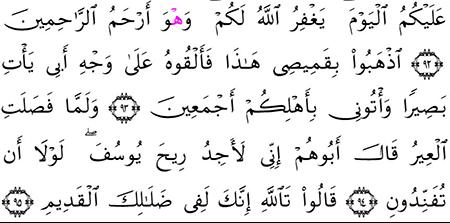 عَلَيْكُمُ الْيَوْمَ يَغْفِرُ اللَّهُ لَكُمْ وَهْوَ أَرْحَمُ الرَّاحِمِينَ
﴿٩٢﴾ اَذْهَبُوا بِقَمِيصِي هَٰذَا فَأَلْقُوهُ عَلَىٰ وَجْهِ أَبِي يَأْتِ
بَصِيرًا وَأْتُونِي بِأَهْلِكُمْ أَجْمَعِينَ ﴿٩٣﴾ وَلَمَّا فَصَلَتِ
الْعِيرُ قَالَ أَبُوهُمْ إِنِّي لَأَجِدُ رِيحَ يُوسُفَ ۖ لَوْلَا أَن
تُفَنِّدُونِ ﴿٩٤﴾ قَالُوا تَاللَّهِ إِنَّكَ لَفِي ضَلَالِكَ الْقَدِيمِ ﴿٩٥﴾